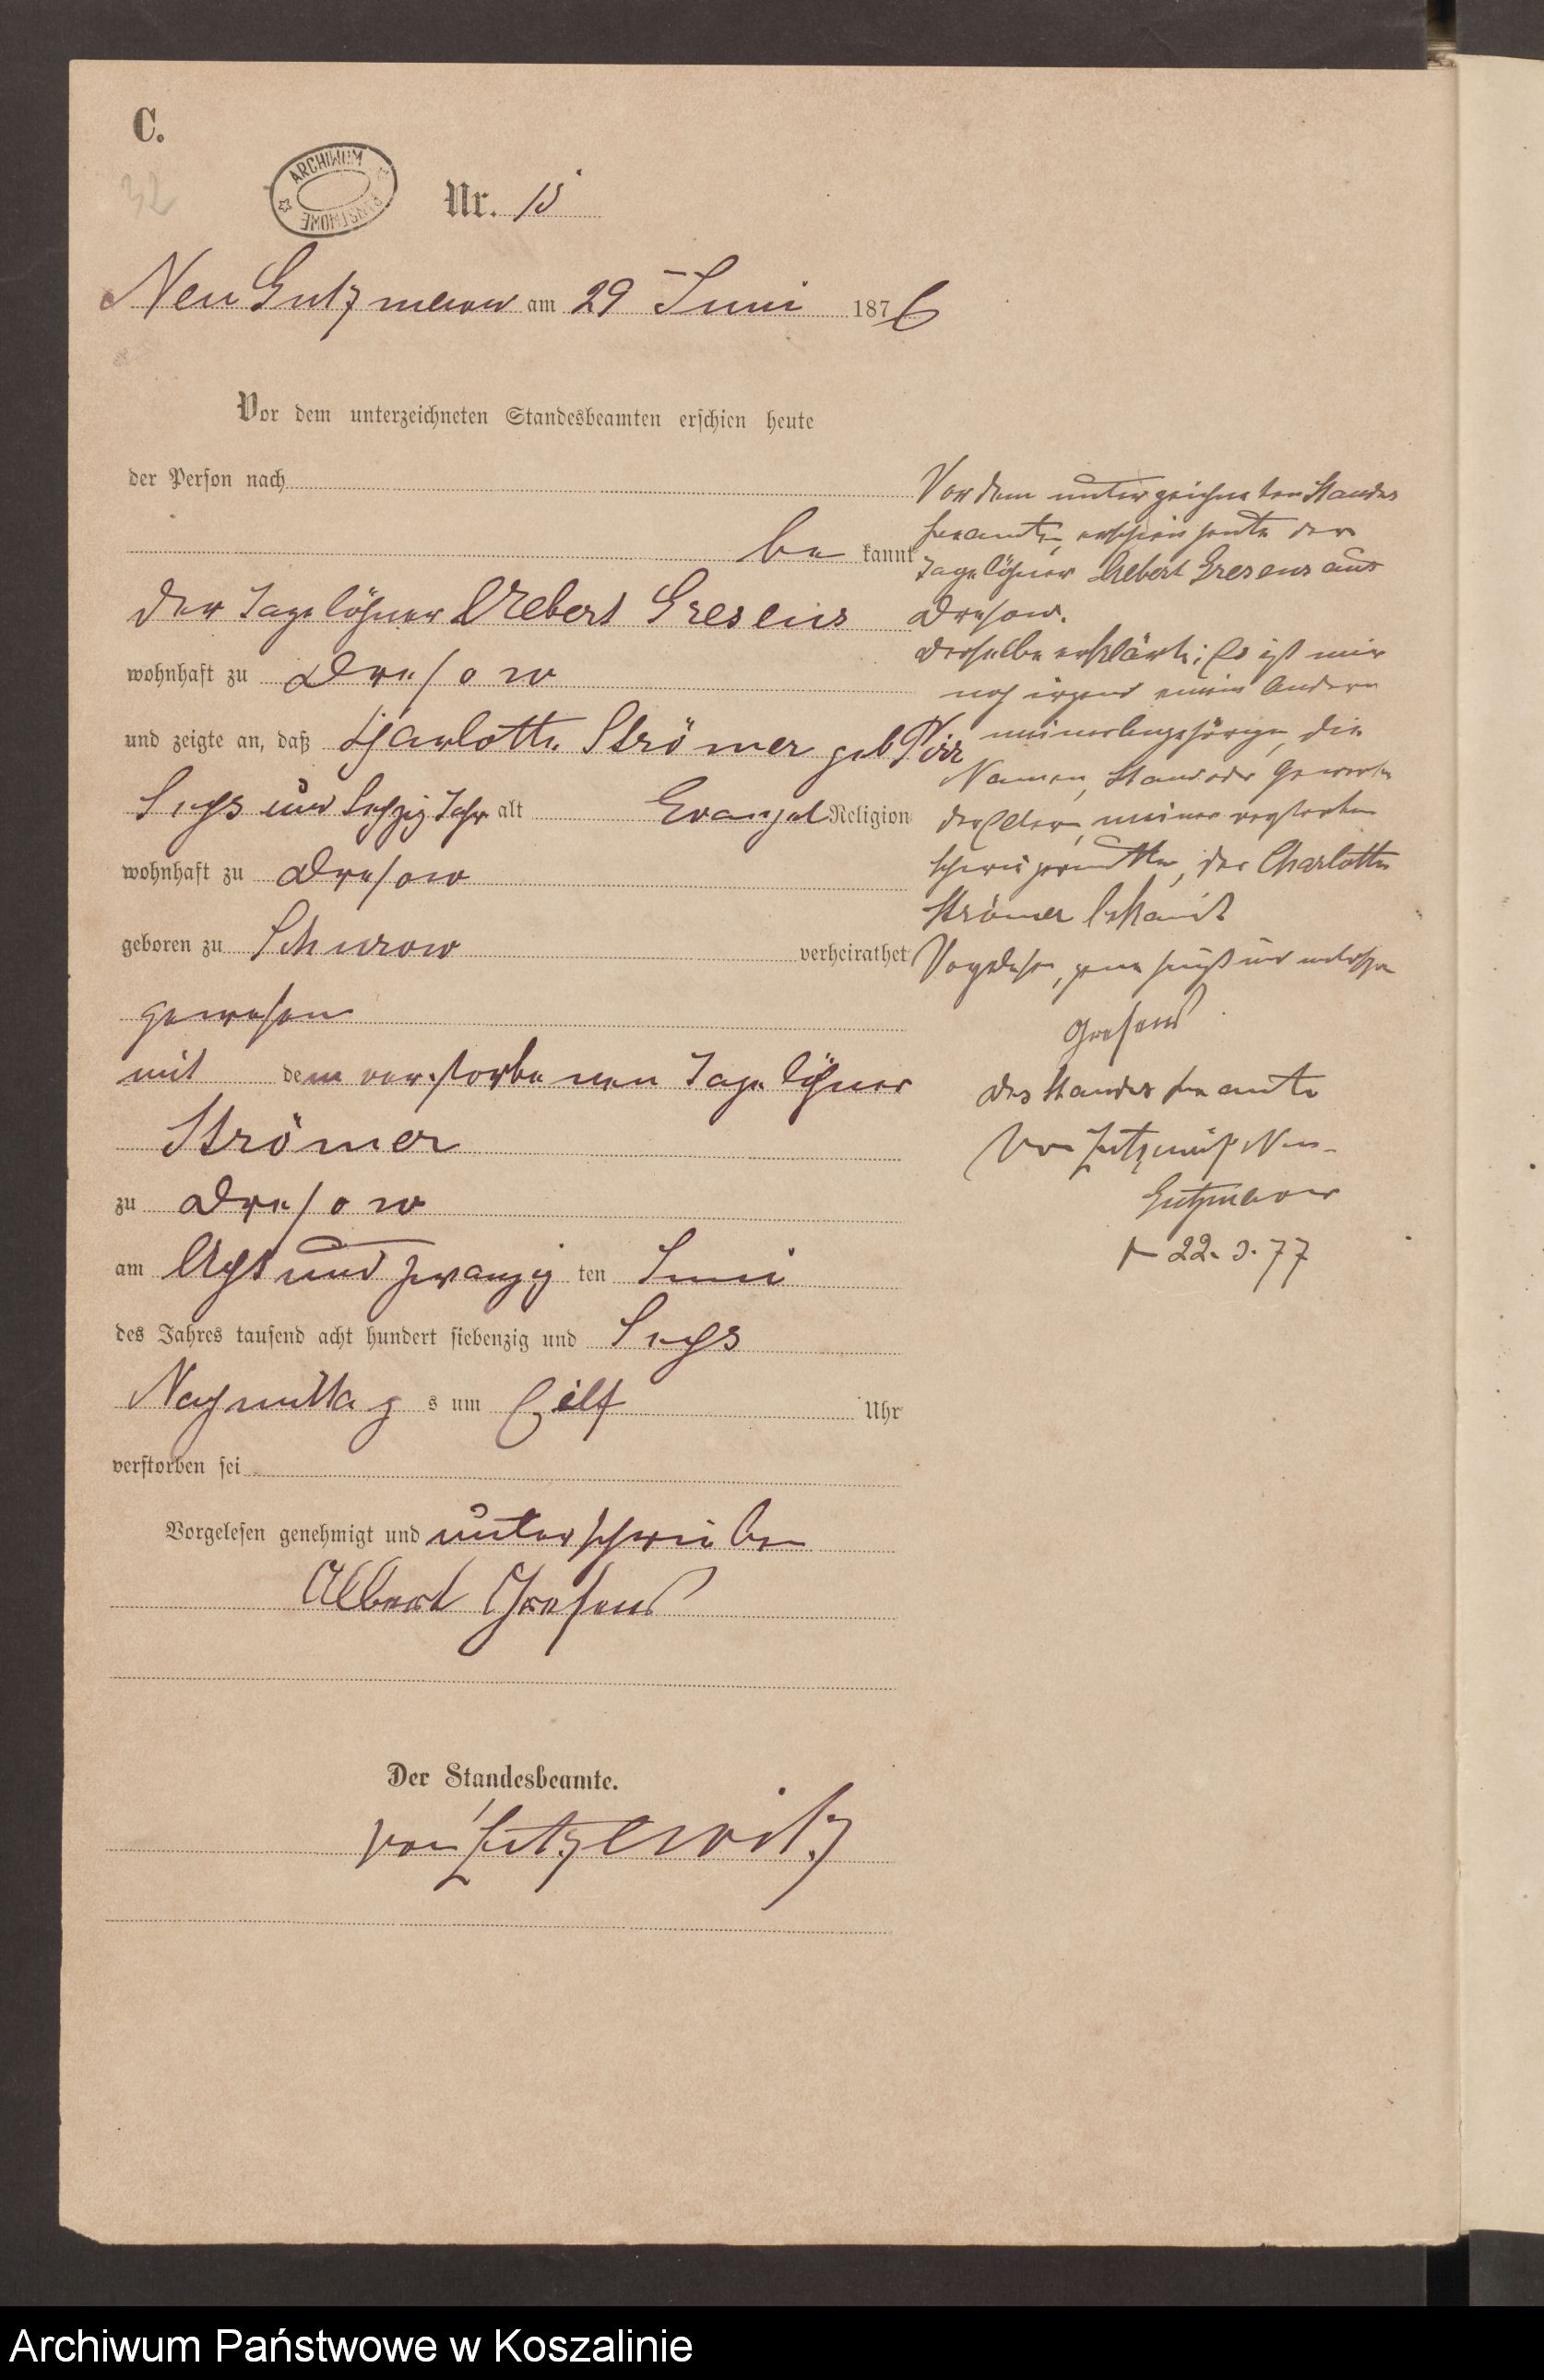 C.
32
ARCHIWUM PAŃSTWOWE
Nr. 15
Neu Gutzmerow am 29 Juni 1876
Vor dem unterzeichneten Standesbeamten erschien heute
der Person nach
be kannt
der Tagelöhner Albert Gresens
wohnhaft zu Dresow
und zeigte an, daß Charlotte Strömer geb Pirr
Sechs und Sechzig Jahr alt Evangel Religion
wohnhaft zu Dresow
geboren zu Schurow verheirathet
gewesen
mit dem verstorbenen Tagelöhner
Strömer
zu Dresow
am Acht und zwanzig ten Juni
des Jahres tausend acht hundert siebenzig und Sechs
Nachmittag s um Eilf Uhr
verstorben sei
Vorgelesen genehmigt und unterschrieben
Albert Gresens
Der Standesbeamte.
von Zitzewitz
Vor dem unterzeichneten Standes
beamten erschien heute der
Tagelöhner Albert Gresens aus
Dresow.
Derselbe erklärte: Es ist mir
noch irgend einem Andern
meiner Angehörigen, die
Namen, Stand oder Gewerbe
der Eltern meiner verstorbenen
Schwiegermutter, der Charlotte
Strömer bekannt
Vorgelesen, genehmigt und unterschrieben
Gresens
Der Standesbeamte
von Zitzewitz Neu-
Gutzmerow
22. 3. 77
Archiwum Państwowe w Koszalinie